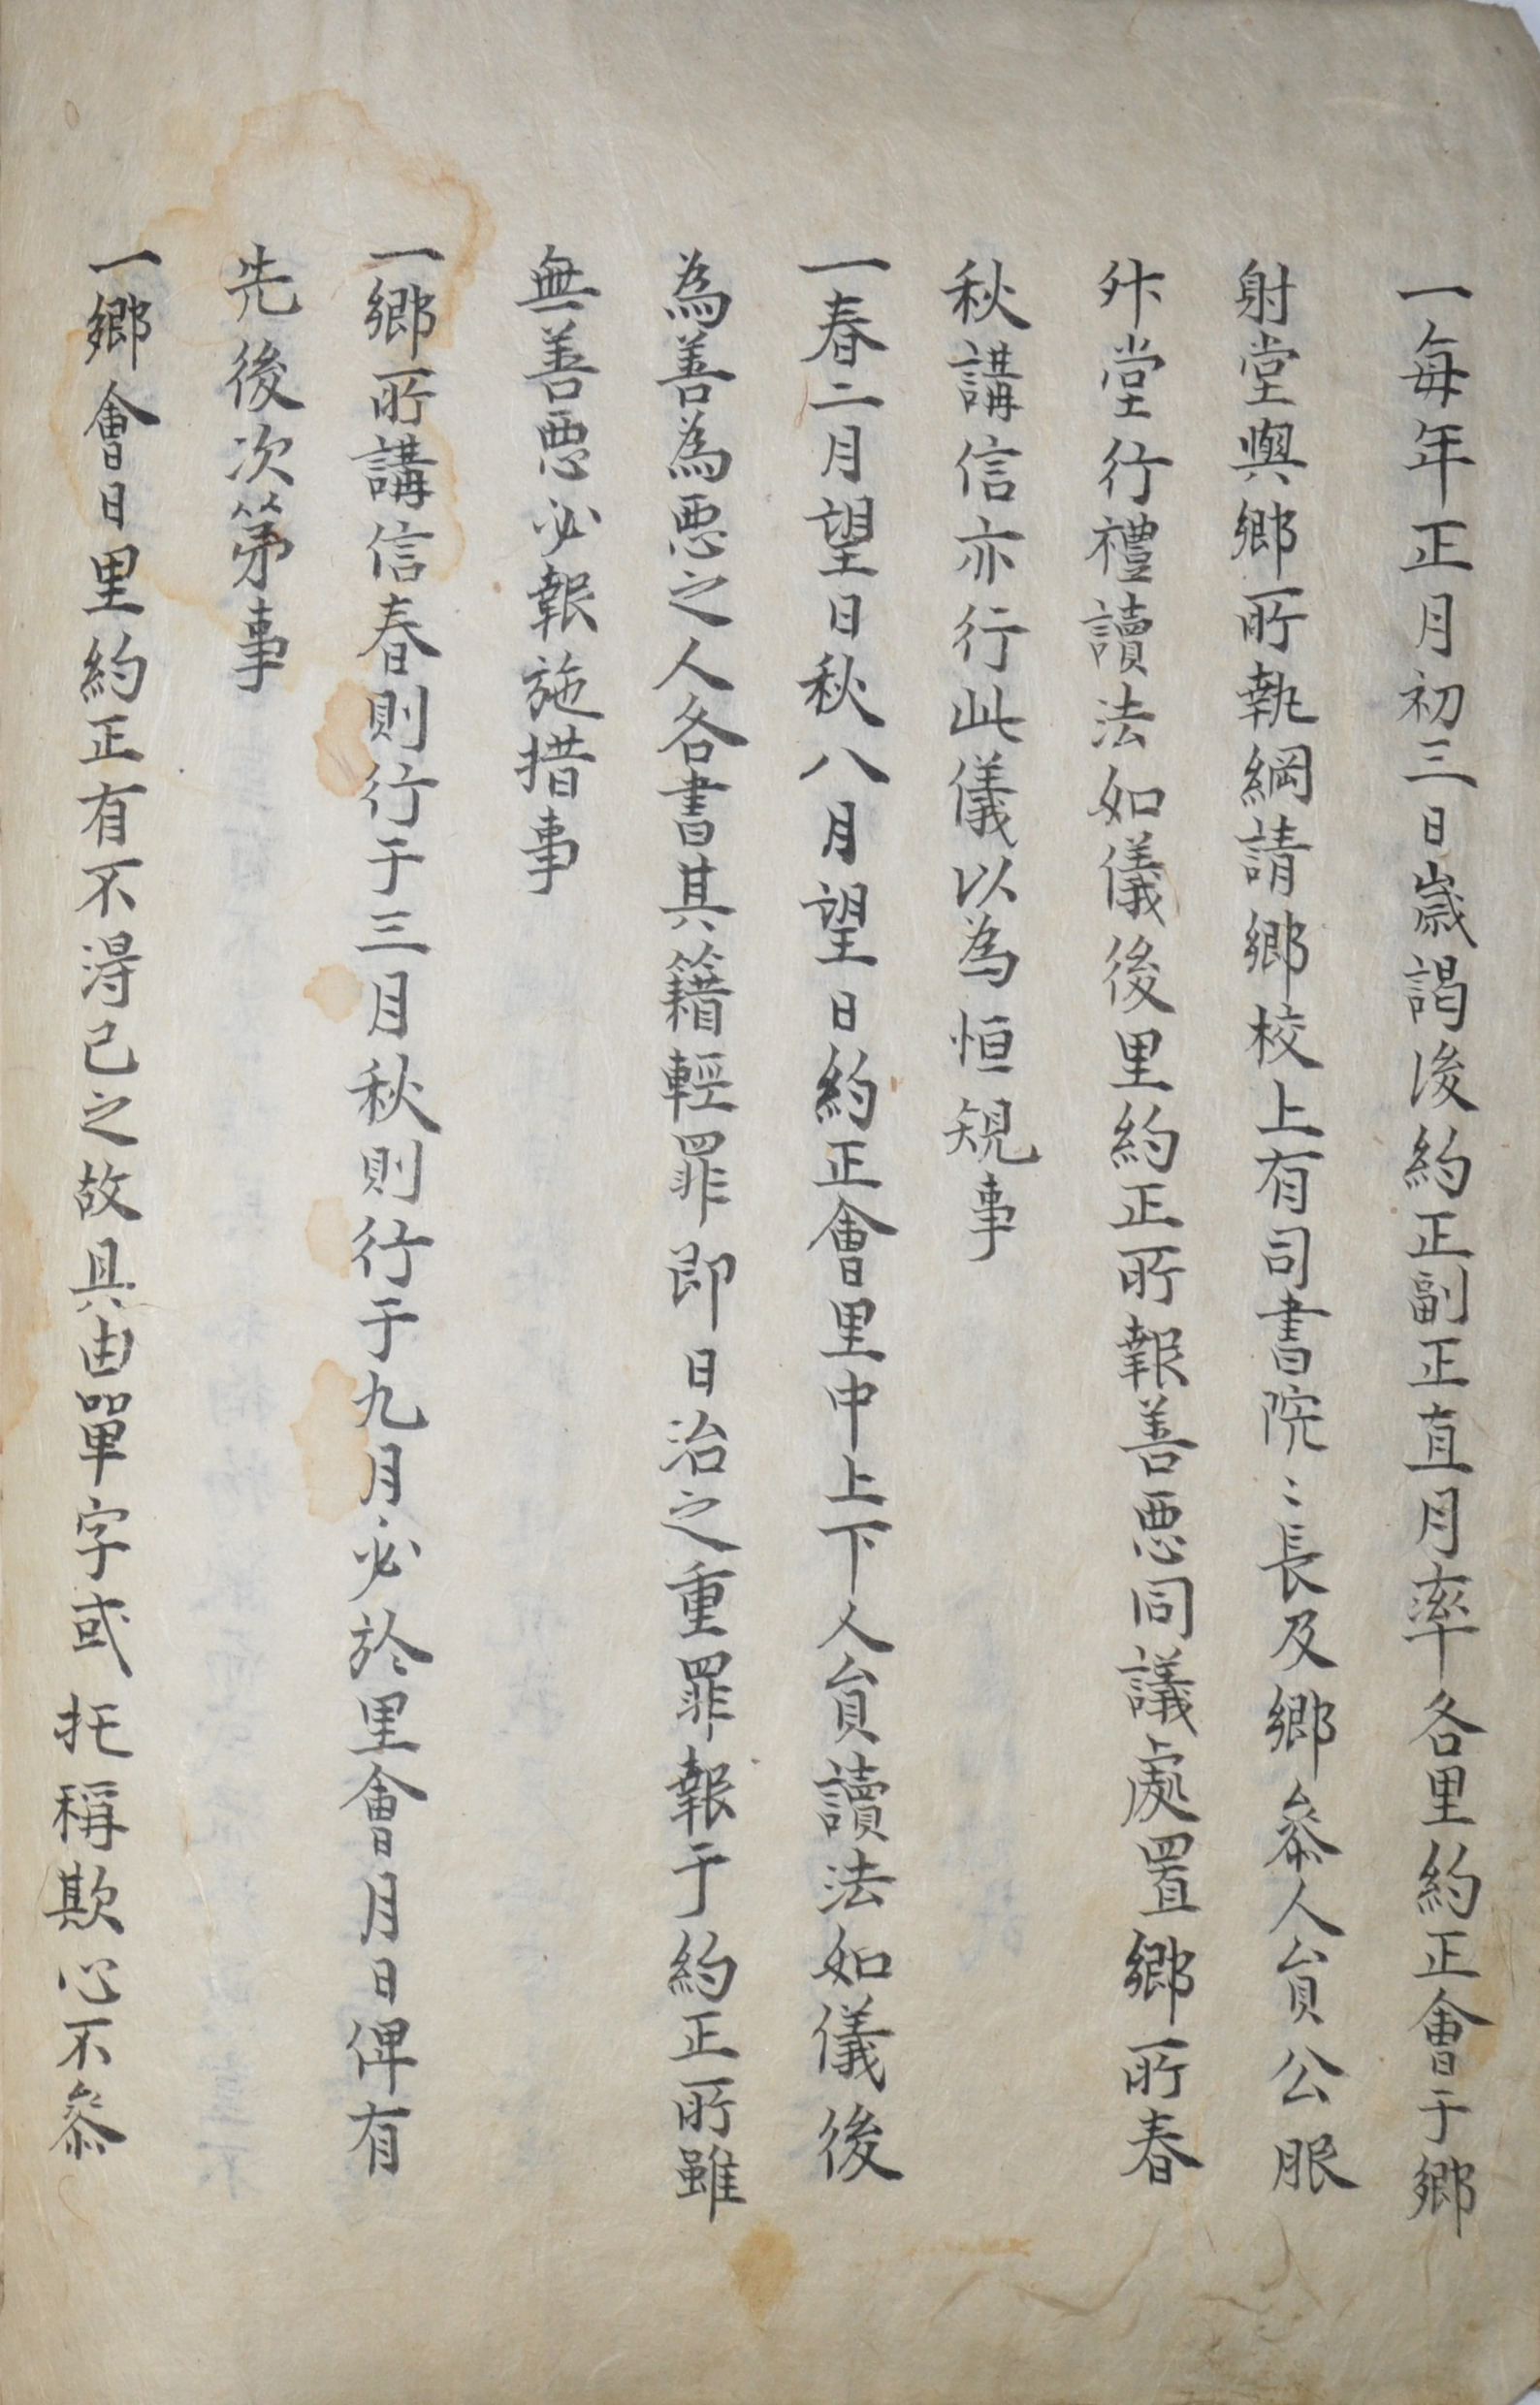 一每年正月初三日歲謁後約正副正直月率各里約正會于鄉
射堂與鄉所執綱請鄉校上有司書院〻長及鄉叅人員公服
升堂行禮讀法如儀後里約正所報善惡同議處置鄉所春
秋講信亦行此儀以為恒規事
一春二月望日秋八月望日約正會里中上下人員讀法如儀後
為善為惡之人各書其籍輕罪即日治之重罪報于約正所雖
無善惡必報施措事
一鄉所講信春則行于三月秋則行于九月必於里會月日俾有
先後次第事
一鄉會日里約正有不淂已之故具由單字或托稱欺心不叅